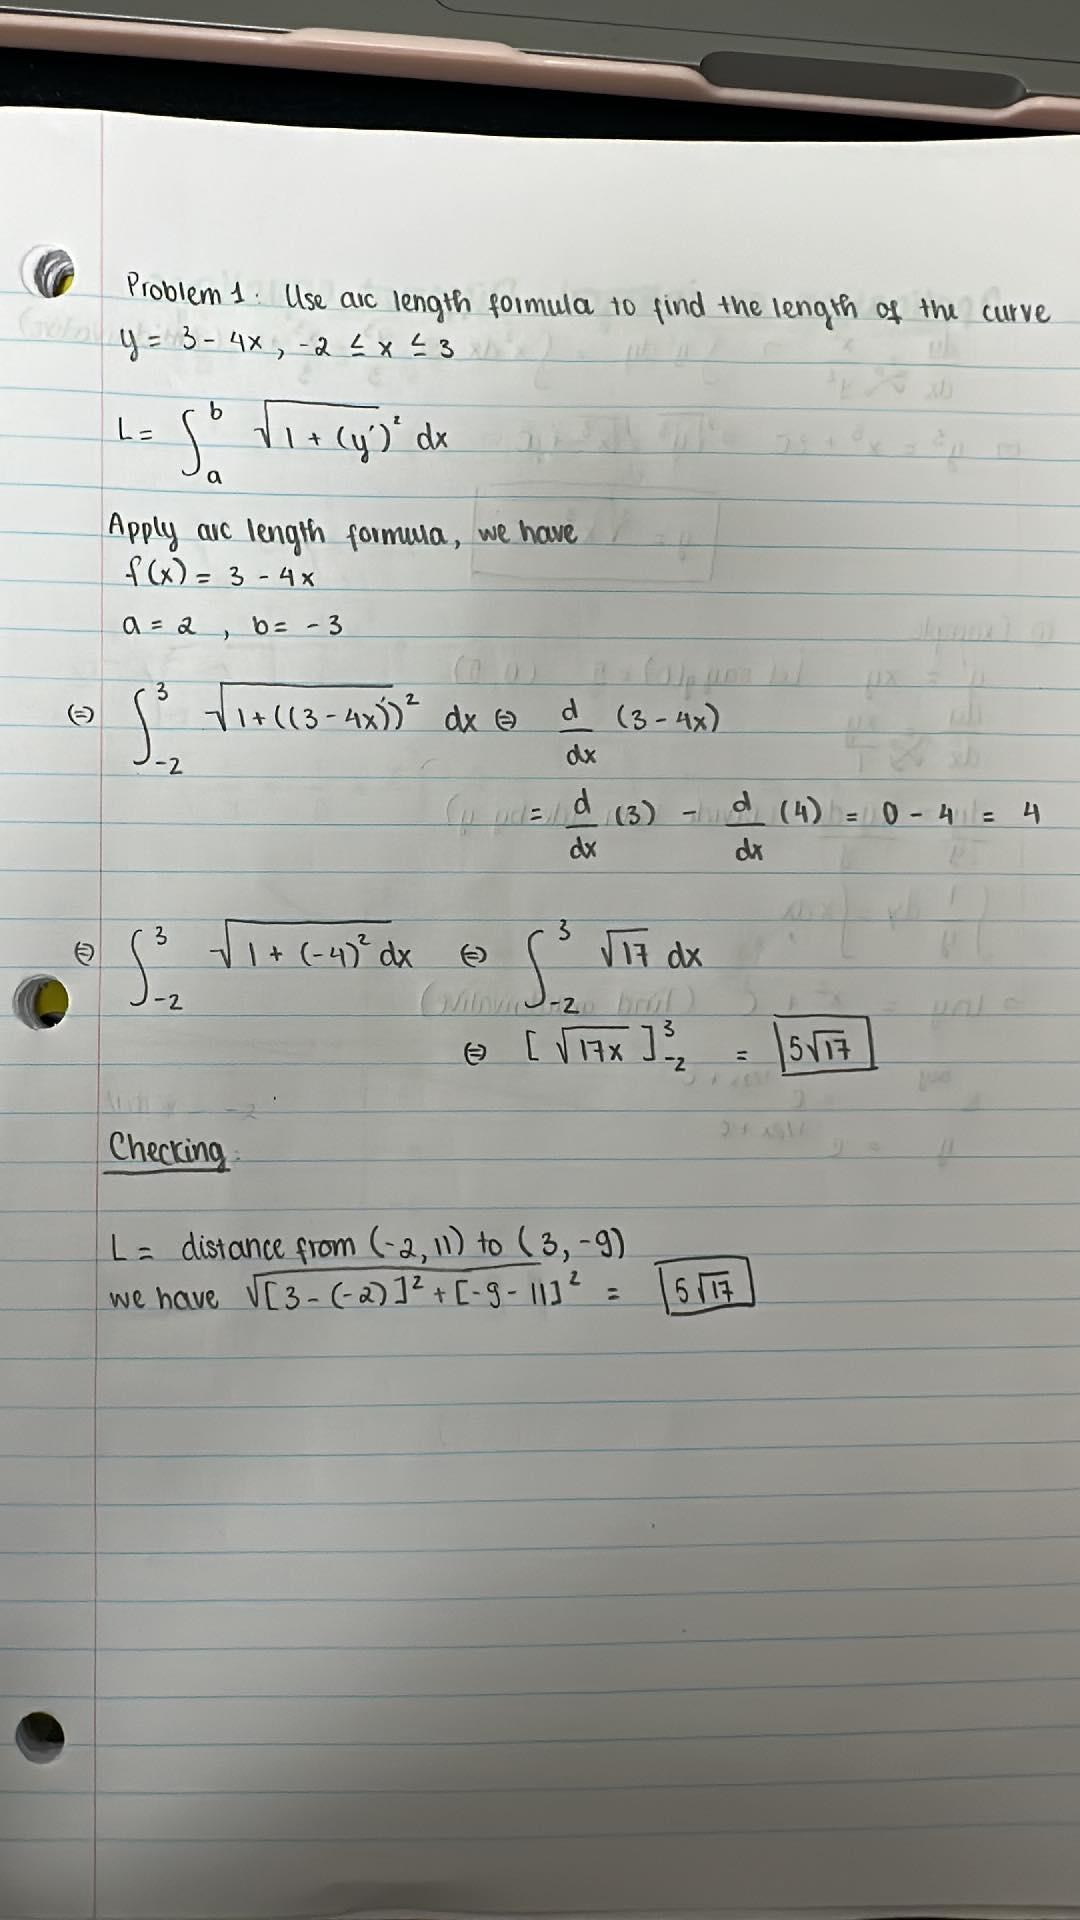 Problem 1: Use arc length formula to find the length of the curve
y = 3 - 4x, -2 ≤ x ≤ 3
L = ∫_a^b √(1 + (y')² dx
Apply arc length formula, we have
f(x) = 3 - 4x
a = 2 , b = -3
⇔ ∫_-2^3 √(1+((3-4x)'))² dx ⇔ d/dx (3-4x)
= d/dx (3) - d/dx (4) = 0 - 4 = 4
⇔ ∫_-2^3 √(1 + (-4)² dx ⇔ ∫_-2^3 √17 dx
⇔ [√17x]_-2^3 = 5√17
Checking:
L = distance from (-2, 11) to (3, -9)
we have √[3-(-2)]² + [-9-11]² = 5√17